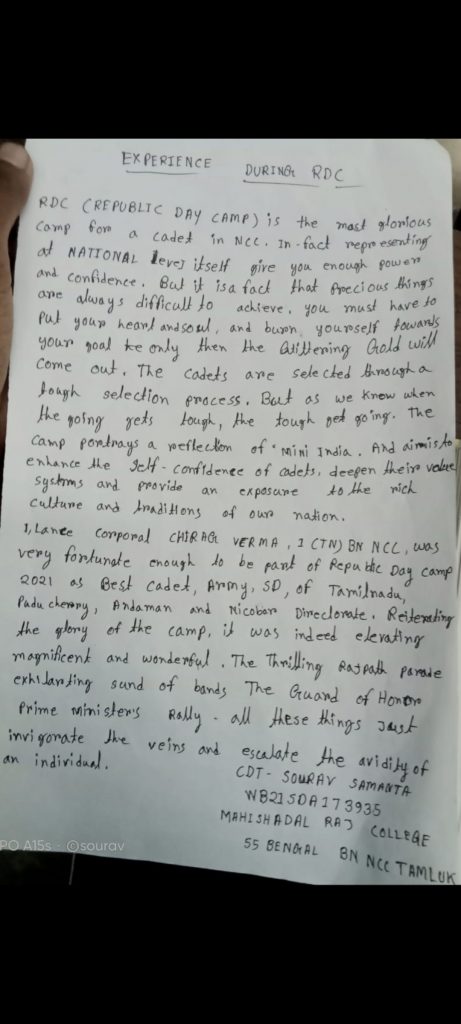 EXPERIENCE DURING RDC
RDC (REPUBLIC DAY CAMP) is the most glorious
camp for a cadet in NCC. In-fact representing
at NATIONAL level itself give you enough power
and confidence. But it is a fact that Precious things
are always difficult to achieve. you must have to
put your heart and soul, and burn yourself towards
your goal ke only then the Glittering Gold will
come out. The cadets are selected through a
tough selection process. But as we know when
the going gets tough, the tough get going. The
camp portrays a reflection of "Mini India. And aims to
enhance the self-confidence of cadets, deepen their value
systms and provide an exposure to the rich
culture and traditions of our nation.
I, Lance corporal CHIRAG VERMA, 1 (TN) BN NCC, was
very fortunate enough to be part of Republic Day camp
2021 as Best Cadet, Army, SD, of Tamilnadu,
Puducherry, Andaman and Nicobar Directorate. Reiterating
the glory of the camp, it was indeed elevating
magnificent and wonderful. The Thrilling Rajpath parade
exhilarting sund of bands The Guard of Honor
Prime Minister's Rally - all these things just
invigorate the veins and escalate the avidity of
an individual.
CDT- SOURAV SAMANTA
WB21SDA173935
MAHISHADAL RAJ COLLEGE
55 BENGAL BN NCC TAMLUK
PO A15s · @sourav